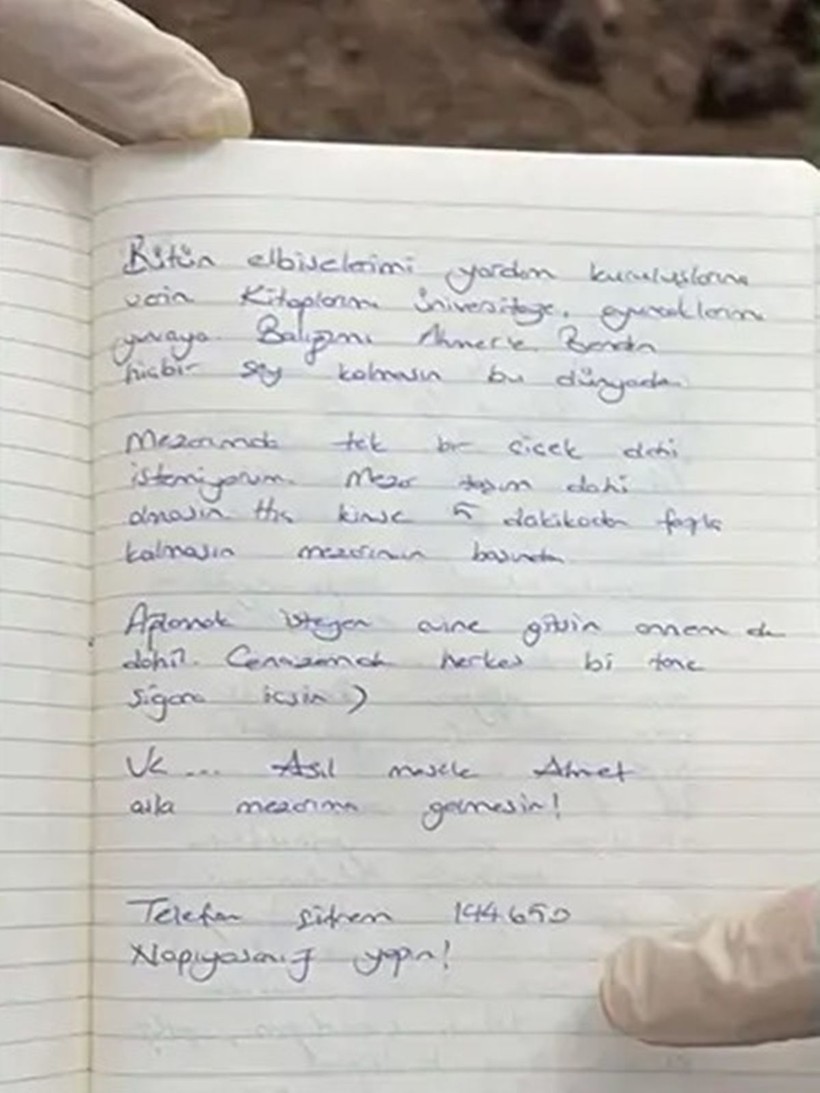 Bütün elbiselerimi yardım kuruluşlarına
verin Kitaplarımı üniversiteye, oyuncaklarımı
yuvaya. Balığımı Ahmet'e. Benden
hiçbir şey kalmasın bu dünyada.
Mezarımda tek bir çiçek dahi
istemiyorum. Mezar taşım dahi
olmasın Hiç kimse 5 dakikadan fazla
kalmasın mezarımın başında.
Ağlamak isteyen evine gitsin annem de
dahil. Cenazemde herkes bi tane
sigara içsin )
Ve... Asıl mesele Ahmet
asla mezarıma gelmesin!
Telefon şifrem 144.650
Napıyosanız yapın!